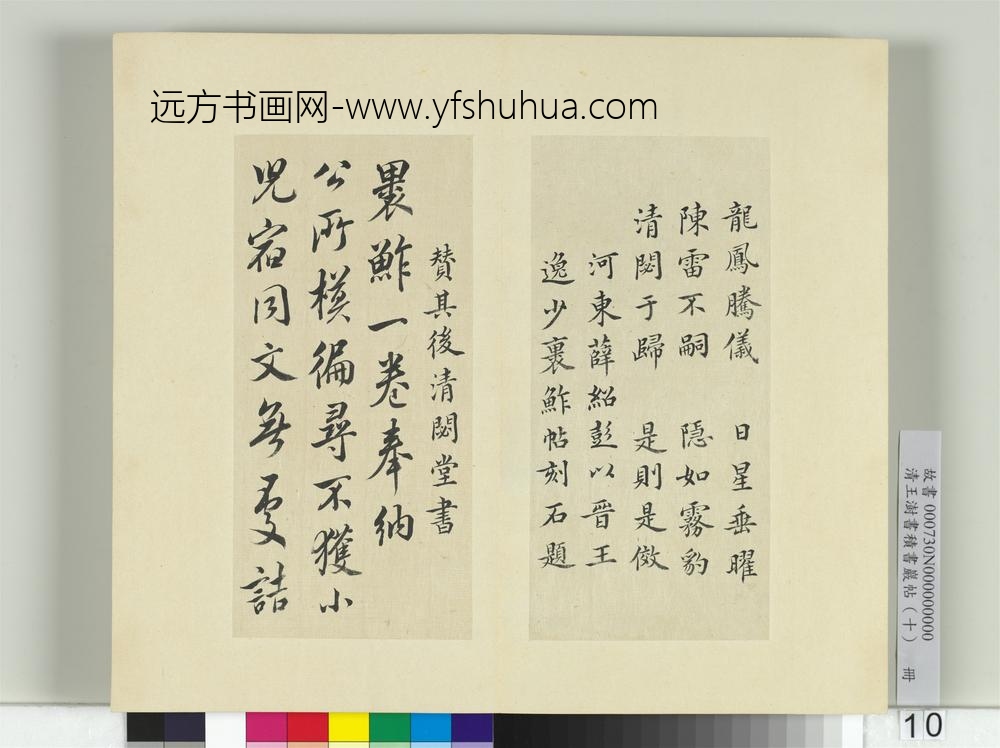 远方书画网-www.yfshuhua.com
龍鳳騰儀 日星垂曜
陳雷不嗣 隱如霧豹
清閟于歸 是則是傚
河東薛紹彭以晉王
逸少裹鮓帖刻石題
賛其後清閟堂書
裹鮓一卷奉納
公所模徧尋不獲小
兒宕同文無更詰
故書000730N000000000
清王澍書積書巖帖（十） 冊
10